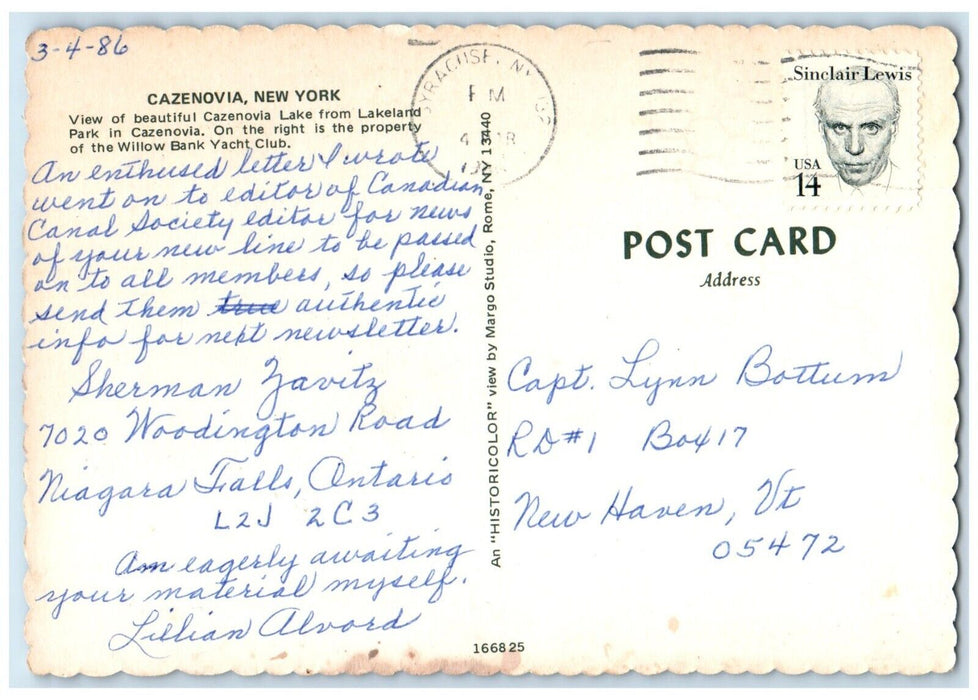 3-4-86
CAZENOVIA, NEW YORK
View of beautiful Cazenovia Lake from Lakeland
Park in Cazenovia. On the right is the property
of the Willow Bank Yacht Club.
An enthused letter I wrote
went on to editor of Canadian
Canal Society editor for news
of your new line to be passed
on to all members, so please
send them true authentic
info for next newsletter.
Sherman Zavitz
7020 Woodington Road
Niagara Falls, Ontario
L2J 2C3
Am eagerly awaiting
your material myself.
Lillian Alvord
An "HISTORICOLOR" view by Margo Studio, Rome, NY 13440
166825
SYRACUSE, NY
PM
Sinclair Lewis
USA
14
POST CARD
Address
Capt. Lynn Bottum
RD#1 Box 17
New Haven, Vt
05472